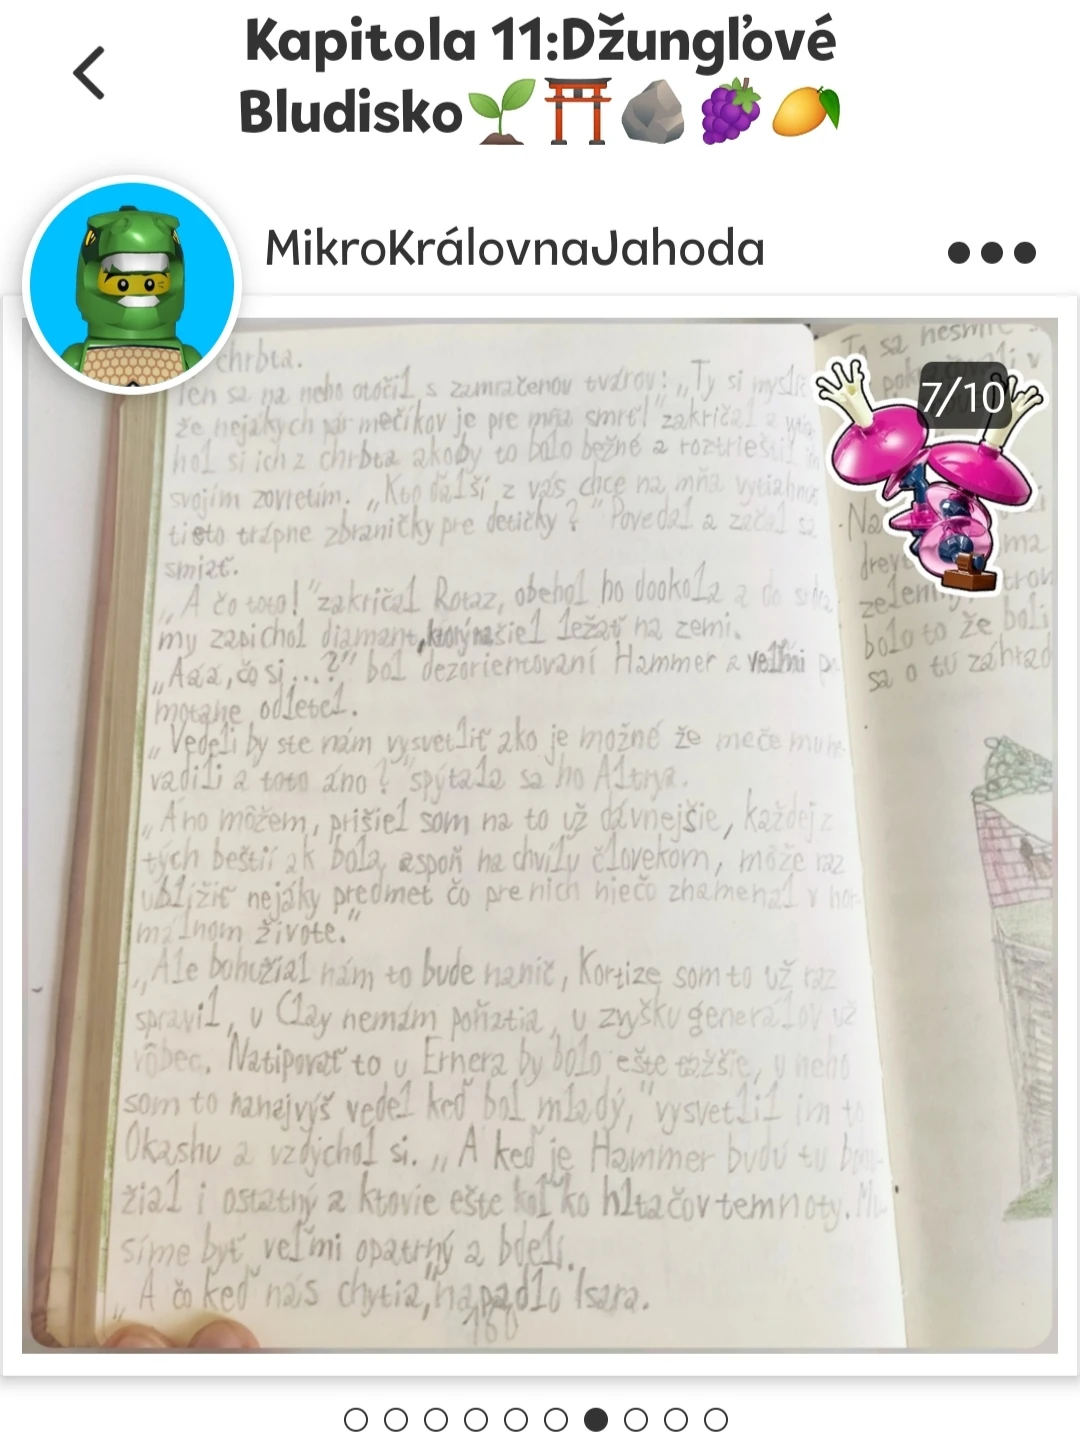 Kapitola 11:Džungľové
Bludisko
MikroKrálovnaJahoda
7/10
chrbta.
Ten sa na neho otočil s zamračenou tvárou: „Ty si myslíš
že nejakých pár mečíkov je pre mňa smrť!" zakričal a
hol si ich z chrbta akoby to bolo bežné a roztrieštil ich
svojím zovretím. „Kto ďalší z vás chce na mňa vytiahnuť
tieto trápne zbraničky pre detičky?" Povedal a začal sa
smiať.
„A čo toto!" zakričal Rotaz, obehol ho dookola a do
my zapichol diamant, ktorý našiel ležať na zemi.
„Aaa, čo si...?" bol dezorientovaní Hammer a veľmi
motane odletel.
„Vedeli by ste nám vysvetliť ako je možné že meče mu ne-
vadili a toto áno?" spýtala sa ho Altrya.
„Áno môžem, prišiel som na to už dávnejšie, každej z
tých beštií ak bola aspoň na chvíľu človekom, môže raz
ublížiť nejáky predmet čo pre nich niečo znamenal v nor-
málnom živote."
„Ale bohužial nám to bude nanič, Kortize som to už raz
spravil, u Clay nemám poňatia, u zvyšku generálov už
vôbec. Natipovať to u Ernera by bolo ešte ťažšie, u neho
som to nanajvýš vedel keď bol mladý," vysvetlil im to
Okashu a vzdychol si. „A keď je Hammer budú tu bohu-
žial i ostatný a ktovie ešte koľko hltačov temnoty. Mu-
síme byť veľmi opatrný a bdelí.
„A čo keď nás chytia," napadlo Isara.
160
To sa nesmie
v
Na
drev
ma
zelen
tron
bolo to že boli
sa o tú záhrad